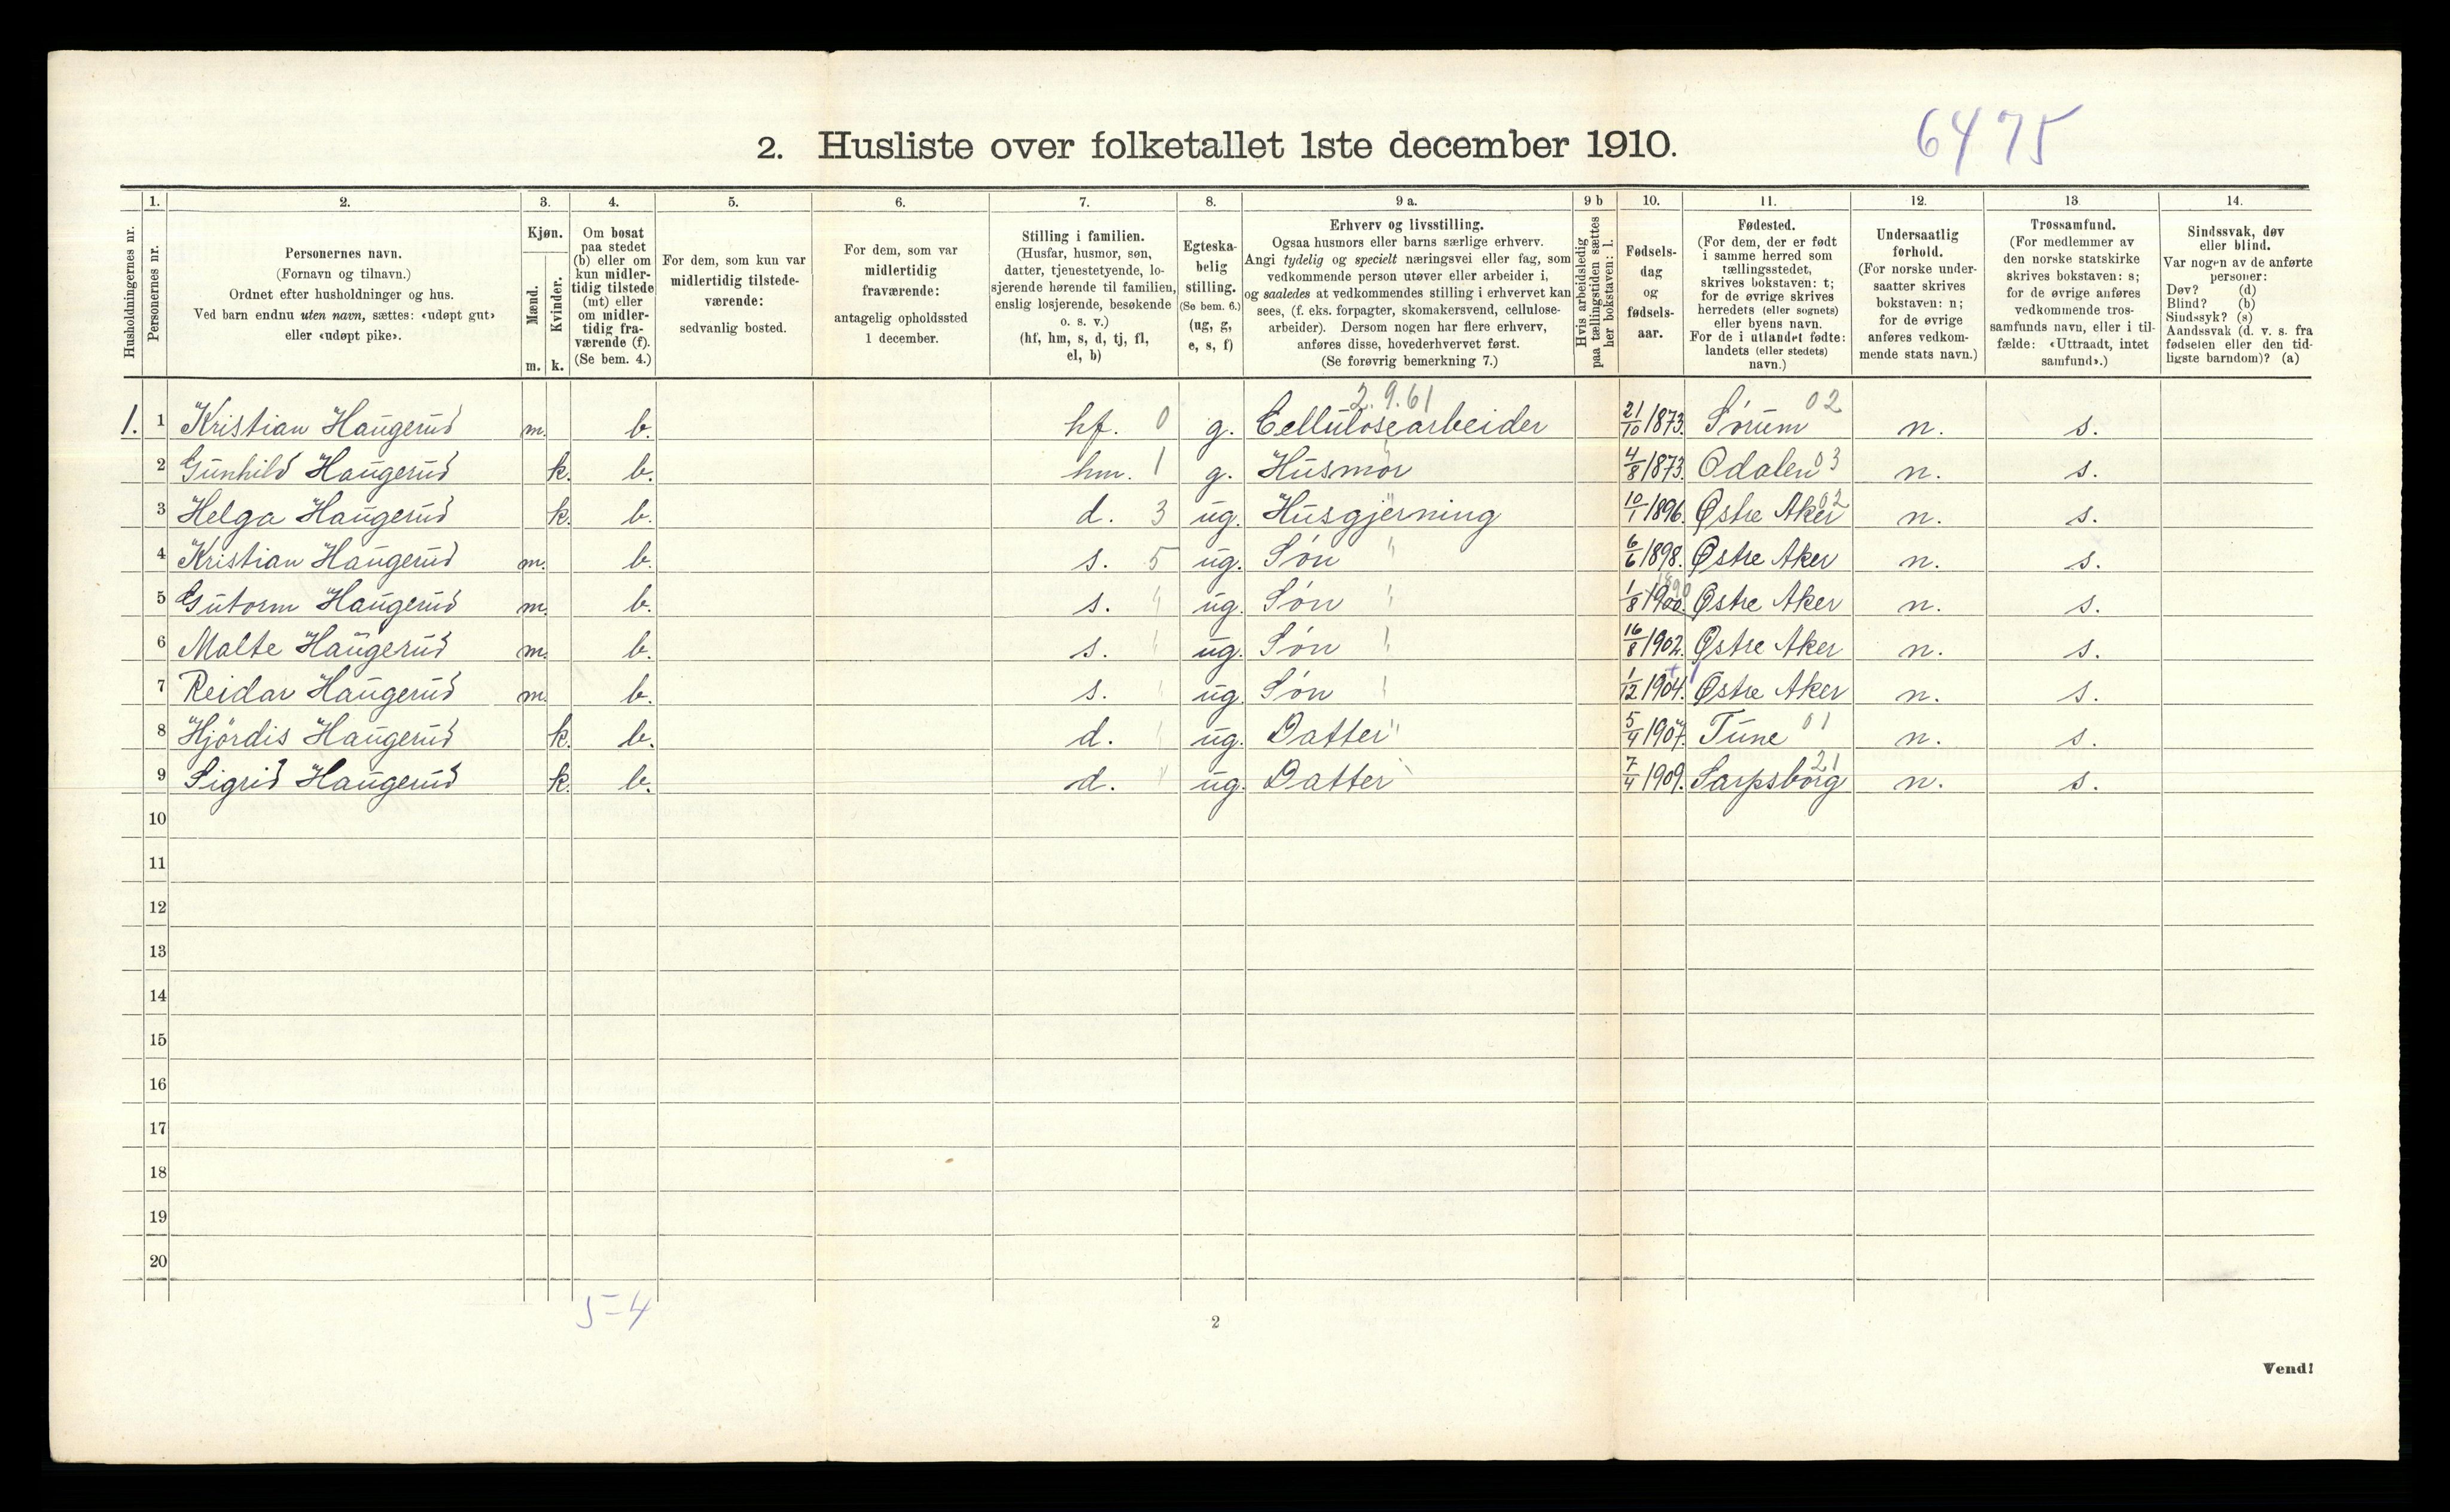 6475
2. Husliste over folketallet 1ste december 1910.
Husholdningernes nr.
1.
Personernes nr.
2.
Personernes navn.
(Fornavn og tilnavn.)
Ordnet efter husholdninger og hus.
Ved barn endnu uten navn, sættes: «udøpt gut»
eller «udøpt pike».
3.
Kjøn.
Mænd.
Kvinder.
m. k.
4.
Om bosat
paa stedet
(b) eller om
kun midler-
tidig tilstede
(mt) eller
om midler-
tidig fra-
værende (f).
(Se bem. 4.)
5.
For dem, som kun var
midlertidig tilstede-
værende:
sedvanlig bosted.
6.
For dem, som var
midlertidig
fraværende:
antagelig opholdssted
1 december.
7.
Stilling i familien.
(Husfar, husmor, søn,
datter, tjenestetyende, lo-
sjerende hørende til familien,
enslig losjerende, besøkende
o. s. v.)
(hf, hm, s, d, tj, fl,
el, b)
8.
Egteska-
belig
stilling.
(Se bem. 6.)
(ug, g,
e, s, f)
9 a.
Erhverv og livsstilling.
Ogsaa husmors eller barns særlige erhverv.
Angi tydelig og specielt næringsvei eller fag, som
vedkommende person utøver eller arbeider i,
og saaledes at vedkommendes stilling i erhvervet kan
sees, (f. eks. forpagter, skomakersvend, cellulose-
arbeider). Dersom nogen har flere erhverv,
anføres disse, hovederhvervet først.
(Se forøvrig bemerkning 7.)
9 b
Hvis arbeidsledig
paa tællingstiden sættes
her bokstaven: l.
10.
Fødsels-
dag
og
fødsels-
aar.
11.
Fødested.
(For dem, der er født
i samme herred som
tællingsstedet,
skrives bokstaven: t;
for de øvrige skrives
herredets (eller sognets)
eller byens navn.
For de i utlandet fødte:
landets (eller stedets)
navn.)
12.
Undersaatlig
forhold.
(For norske under-
saatter skrives
bokstaven: n;
for de øvrige
anføres vedkom-
mende stats navn.)
13
Trossamfund.
(For medlemmer av
den norske statskirke
skrives bokstaven: s;
for de øvrige anføres
vedkommende tros-
samfunds navn, eller i til-
fælde: «Uttraadt, intet
samfund».)
14.
Sindssvak, døv
eller blind.
Var nogen av de anførte
personer:
Døv? (d)
Blind? (b)
Sindssyk? (s)
Aandssvak (d. v. s. fra
fødselen eller den tid-
ligste barndom)? (a)
2.9.61 02
1. 1 Kristian Haugerud m. b. hf. 0 g. Cellulosearbeider 21/10 1873. Sørum n. s.
2 Gunhild Haugerud k. b. hm. 1 g. Husmor 4/8 1873. Odalen 03 n. s.
3 Helga Haugerud k. b. d. 3 ug. Husgjerning 10/1 1896. Østre Aker 02 n. s.
4 Kristian Haugerud m. b. s. 5 ug. Søn " 6/6 1898. Østre Aker n. s.
5 Gutorm Haugerud m. b. s. " ug. Søn " 1/8 1900. Østre Aker n. s.
6 Malte Haugerud m. b. s. " ug. Søn " 16/8 1902. Østre Aker n. s.
7 Reidar Haugerud m. b. s. " ug. Søn " 1/12 1904. Østre Aker n. s.
8 Hjördis Haugerud k. b. d. " ug. Datter " 5/4 1907. Tune 01 n. s.
9 Sigrid Haugerud k. b. d. " ug. Datter 7/4 1909. Sarpsborg 21 n. s.
10
11
12
13
14
15
16
17
18
19
20
5=4
2
Vend!